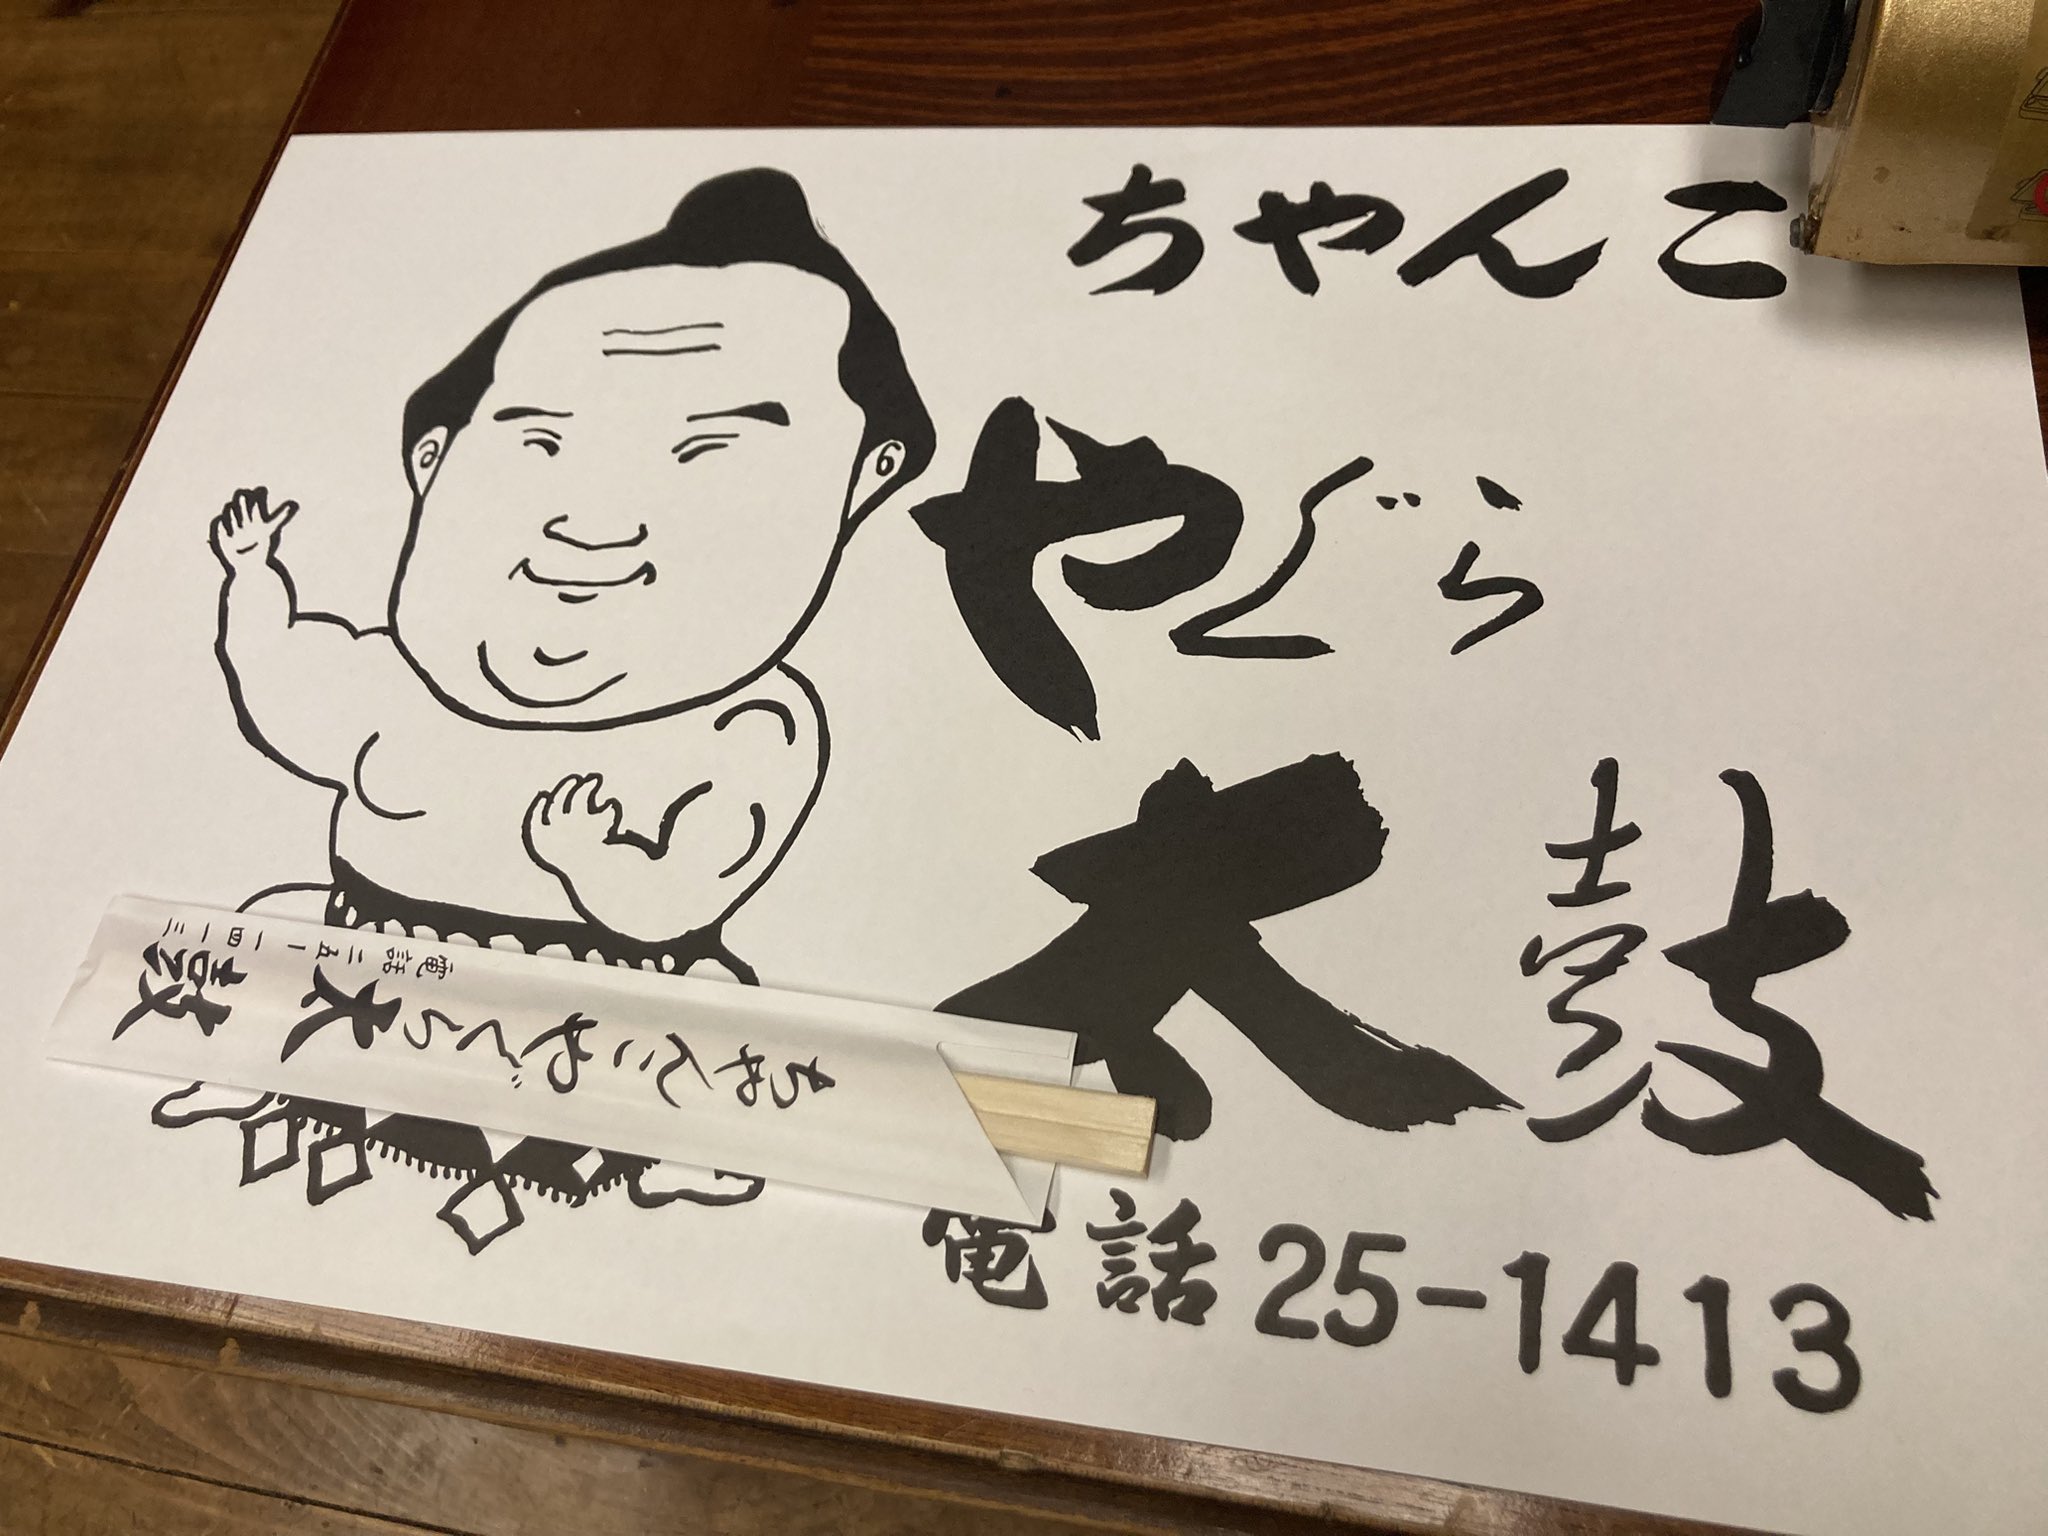 ちゃんこ
やぐら
太鼓
電話25-1413
ちゃんこやぐら太鼓
電話 二五ー一四一三